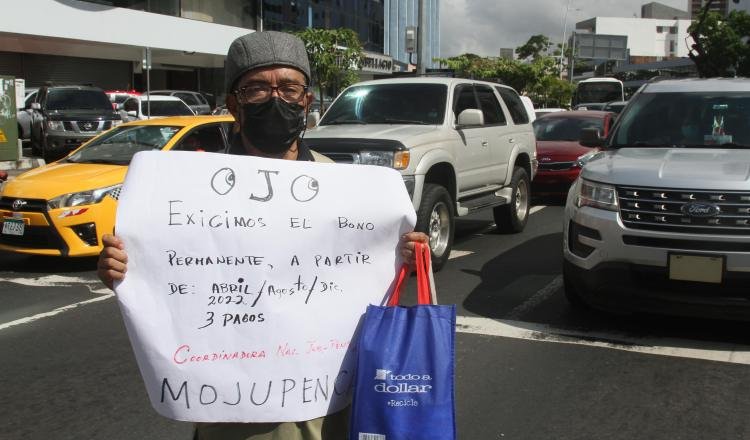 OJO
EXIGIMOS EL BONO
PERMANENTE, A PARTIR
DE: ABRIL/Agosto/Dic.
2022
3 PAGOS
MOJUPENC
todo a
dollar
Recicle
Ford